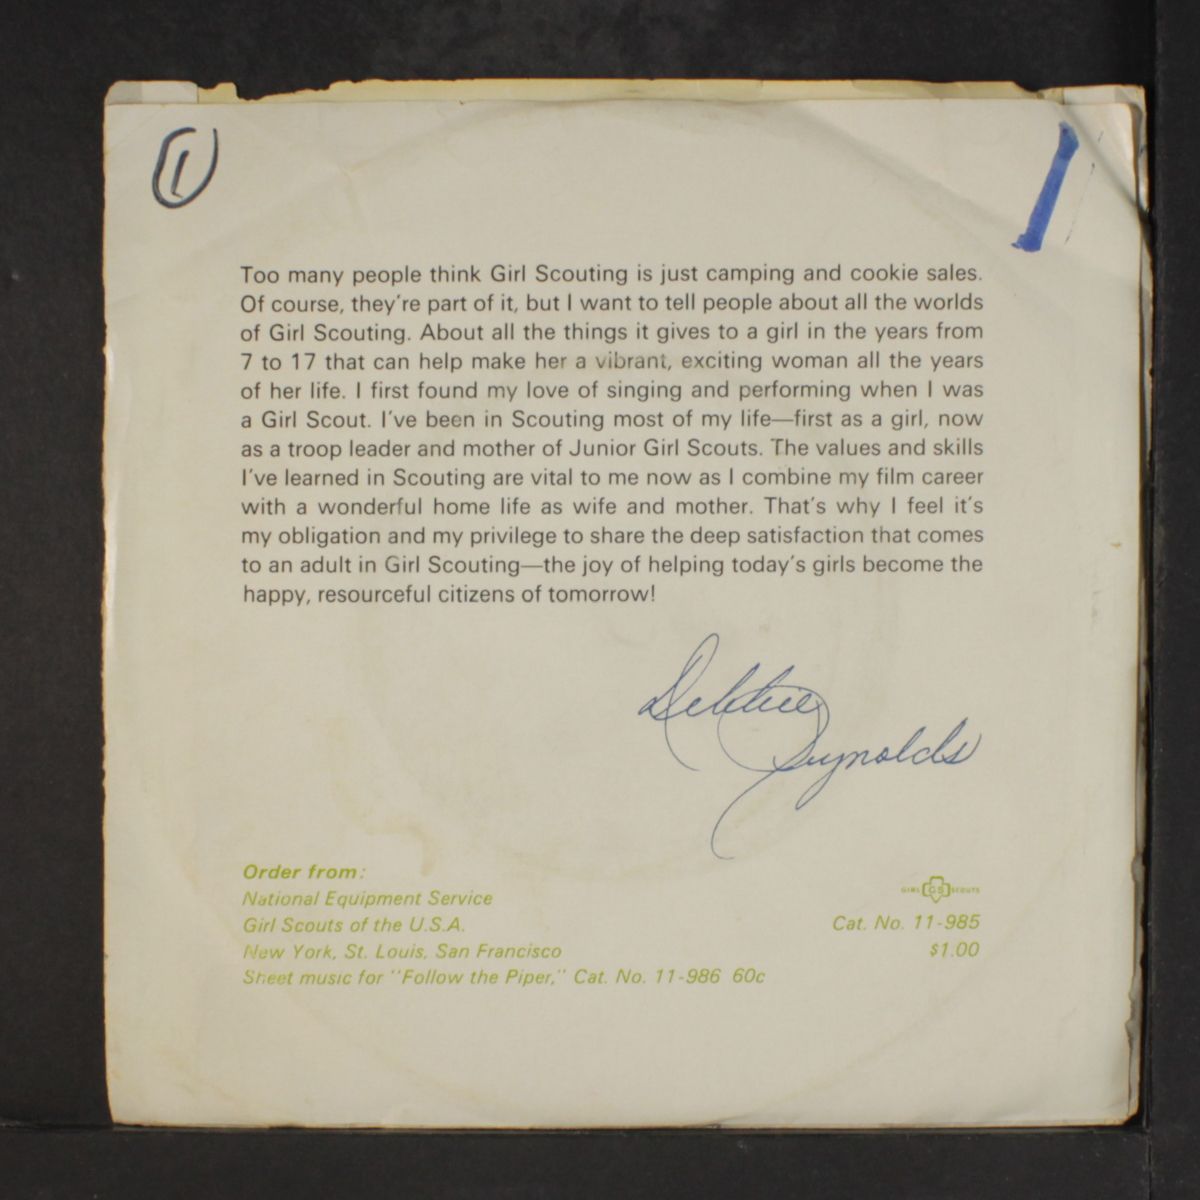 1
Too many people think Girl Scouting is just camping and cookie sales.
Of course, they're part of it, but I want to tell people about all the worlds
of Girl Scouting. About all the things it gives to a girl in the years from
7 to 17 that can help make her a vibrant, exciting woman all the years
of her life. I first found my love of singing and performing when I was
a Girl Scout. I've been in Scouting most of my life—first as a girl, now
as a troop leader and mother of Junior Girl Scouts. The values and skills
I've learned in Scouting are vital to me now as I combine my film career
with a wonderful home life as wife and mother. That's why I feel it's
my obligation and my privilege to share the deep satisfaction that comes
to an adult in Girl Scouting—the joy of helping today's girls become the
happy, resourceful citizens of tomorrow!
Debbie
Reynolds
Order from:
National Equipment Service
Girl Scouts of the U.S.A.
New York, St. Louis, San Francisco
Sheet music for "Follow the Piper," Cat. No. 11-986 60c
GIRL GS SCOUTS
Cat. No. 11-985
$1.00